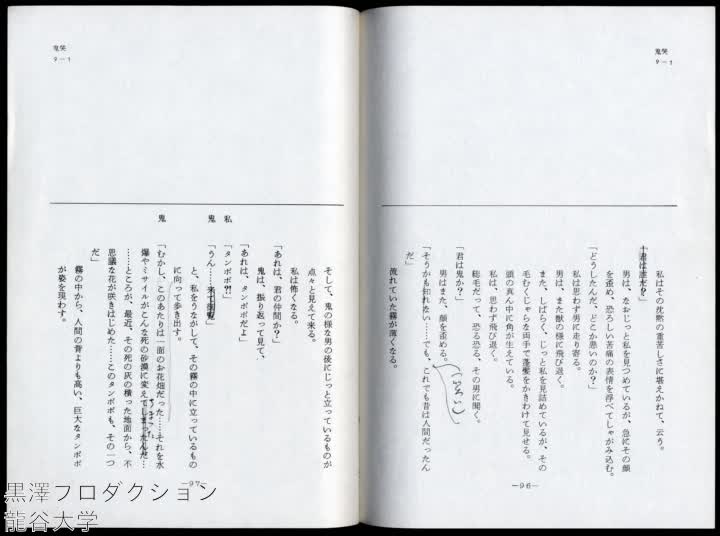 鬼哭
9－1
私はその沈黙の重苦しさに堪えかねて、云う。
「君は誰だ？」
男は、なおじっと私を見つめているが、急にその顔
を歪め、恐ろしい苦痛の表情を浮べてしゃがみ込む。
「どうしたんだ、どこか悪いのか？」
私は思わず男に走り寄る。
男は、また獣の様に飛び退く。
また、しばらく、じっと私を見詰めているが、その
毛むくじゃらな両手で蓬髪をかきわけて見せる。
頭の真ん中に角が生えている。
私は、思わず飛び退く。
総毛だって、恐る恐る、その男に聞く。
「君は鬼か？」
男はまた、顔を歪める。
「そうかも知れない……でも、これでも昔は人間だったん
だ」
流れていた霧が薄くなる。
－96－
鬼哭
9－1
そして、鬼の様な男の後にじっと立っているものが
点々と見えて来る。
私は怖くなる。
「あれは、君の仲間か？」
鬼は、振り返って見て、
「あれは、タンポポだよ」
私　「タンポポ⁈」
鬼　「うん……来て御覧」
と、私をうながして、その霧の中に立っているもの
に向って歩き出す。
鬼　「むかし、このあたりは一面のお花畑だった……それを水
爆やミサイルがこんな死の砂漠に変えてしまったんだ…
……ところが、最近、その死の灰の積った地面から、不
思議な花が咲きはじめた……このタンポポも、その一つ
だ」
霧の中から、人間の背よりも高い、巨大なタンポポ
が姿を現わす。
－97－
黒澤プロダクション
龍谷大学